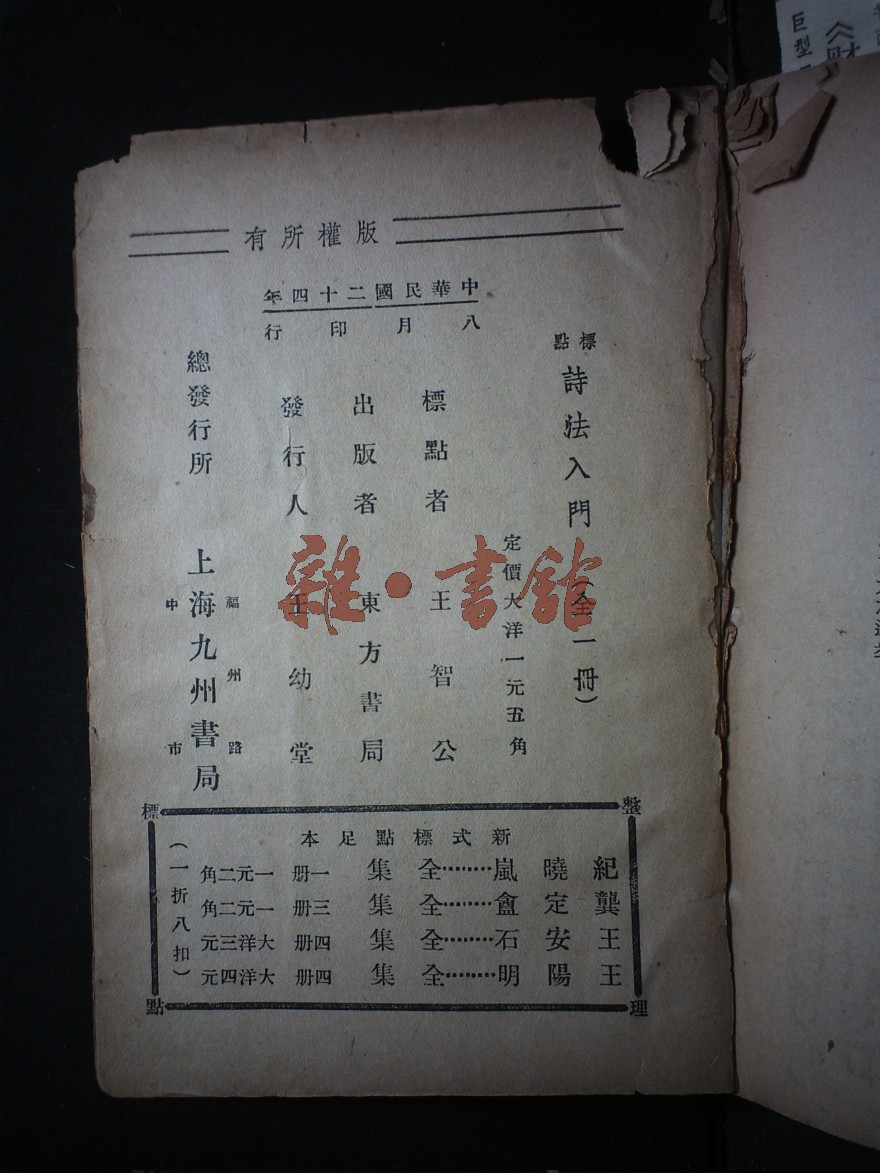 版權所有
中華民國二十四年
八月印行
標點
詩法入門(全一冊)
定價大洋一元五角
標點者 王智公
出版者 東方書局
發行人 王幼堂
總發行所 上海九州書局
福州路
中市
整理標點
新式標點足本
紀曉嵐………全集 一册 一元二角
龔定盦………全集 三册 一元二角
王安石………全集 四册 大洋三元
王陽明………全集 四册 大洋四元
(一折八扣)
雜·書館
巨型
《財